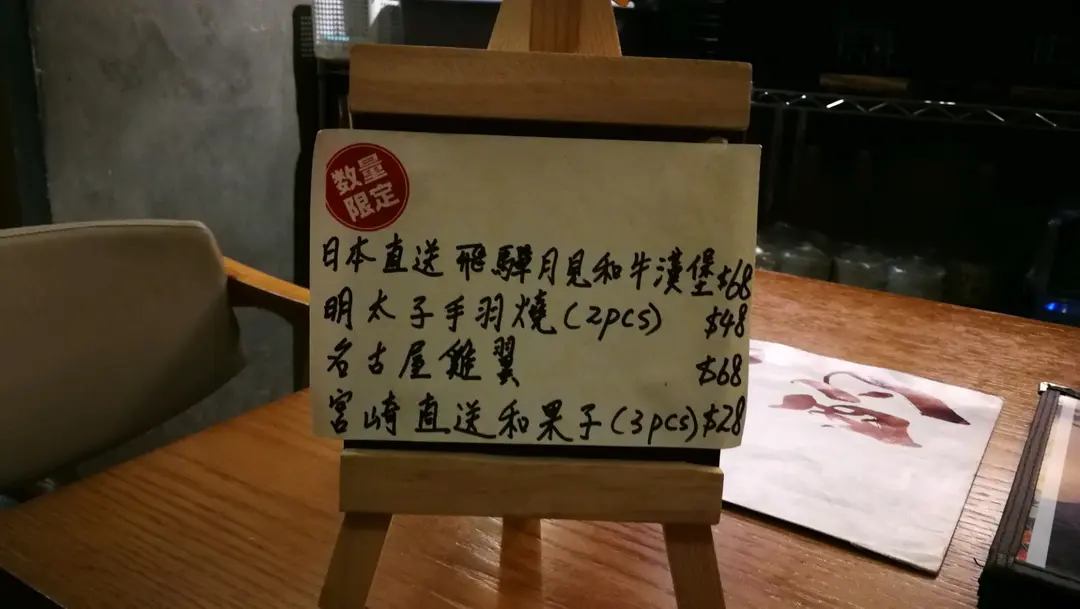 数量
限定
日本直送 飛驒月見和牛漢堡 $68
明太子手羽燒(2pcs) $48
名古屋雞翼 $68
宮崎直送和果子(3pcs) $28